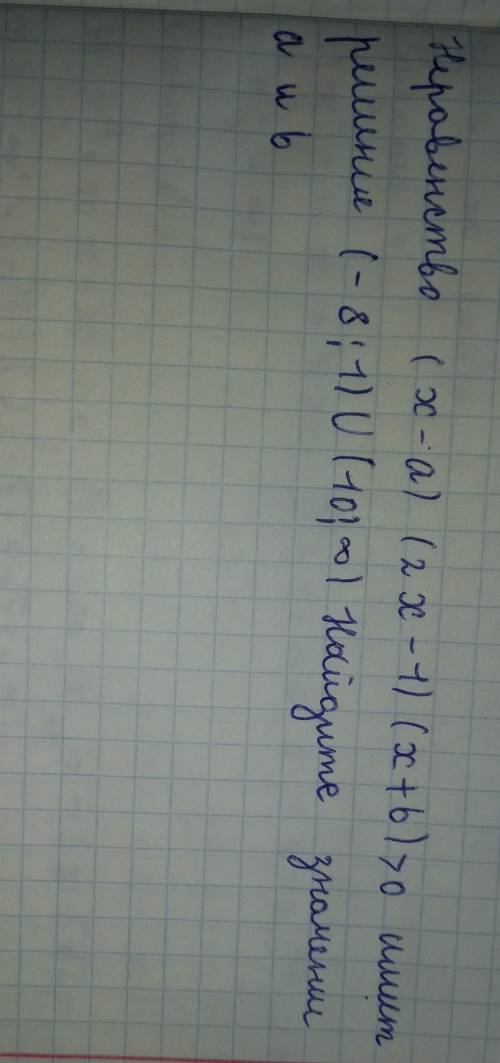 Неравенство (x-a)(2x-1)(x+b)>0 имеет
решение (-8;1)∪(10;∞) Найдите значение
a и b